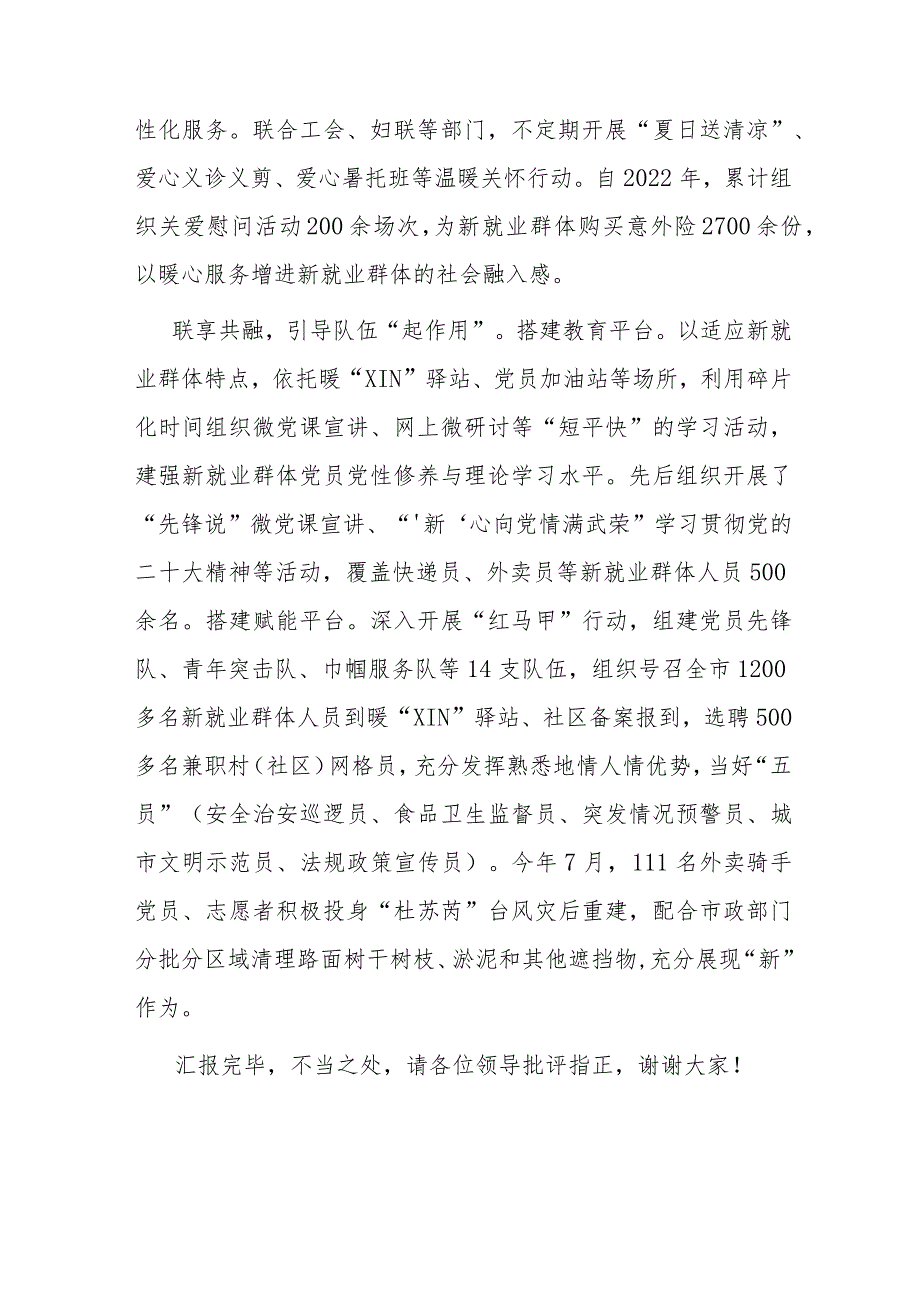 性化服务。联合工会、妇联等部门，不定期开展“夏日送清凉”、
爱心义诊义剪、爱心暑托班等温暖关怀行动。自2022年，累计组
织关爱慰问活动200余场次，为新就业群体购买意外险2700余份，
以暖心服务增进新就业群体的社会融入感。
联享共融，引导队伍“起作用”。搭建教育平台。以适应新就
业群体特点，依托暖“XIN”驿站、党员加油站等场所，利用碎片
化时间组织微党课宣讲、网上微研讨等“短平快”的学习活动，
建强新就业群体党员党性修养与理论学习水平。先后组织开展了
“先锋说”微党课宣讲、“'新‘心向党情满武荣”学习贯彻党的
二十大精神等活动，覆盖快递员、外卖员等新就业群体人员500
余名。搭建赋能平台。深入开展“红马甲”行动，组建党员先锋
队、青年突击队、巾帼服务队等14支队伍，组织号召全市1200
多名新就业群体人员到暖“XIN”驿站、社区备案报到，选聘500
多名兼职村（社区）网格员，充分发挥熟悉地情人情优势，当好“五
员”（安全治安巡逻员、食品卫生监督员、突发情况预警员、城
市文明示范员、法规政策宣传员）。今年7月，111名外卖骑手
党员、志愿者积极投身“杜苏芮”台风灾后重建，配合市政部门
分批分区域清理路面树干树枝、淤泥和其他遮挡物,充分展现“新”
作为。
汇报完毕，不当之处，请各位领导批评指正，谢谢大家！